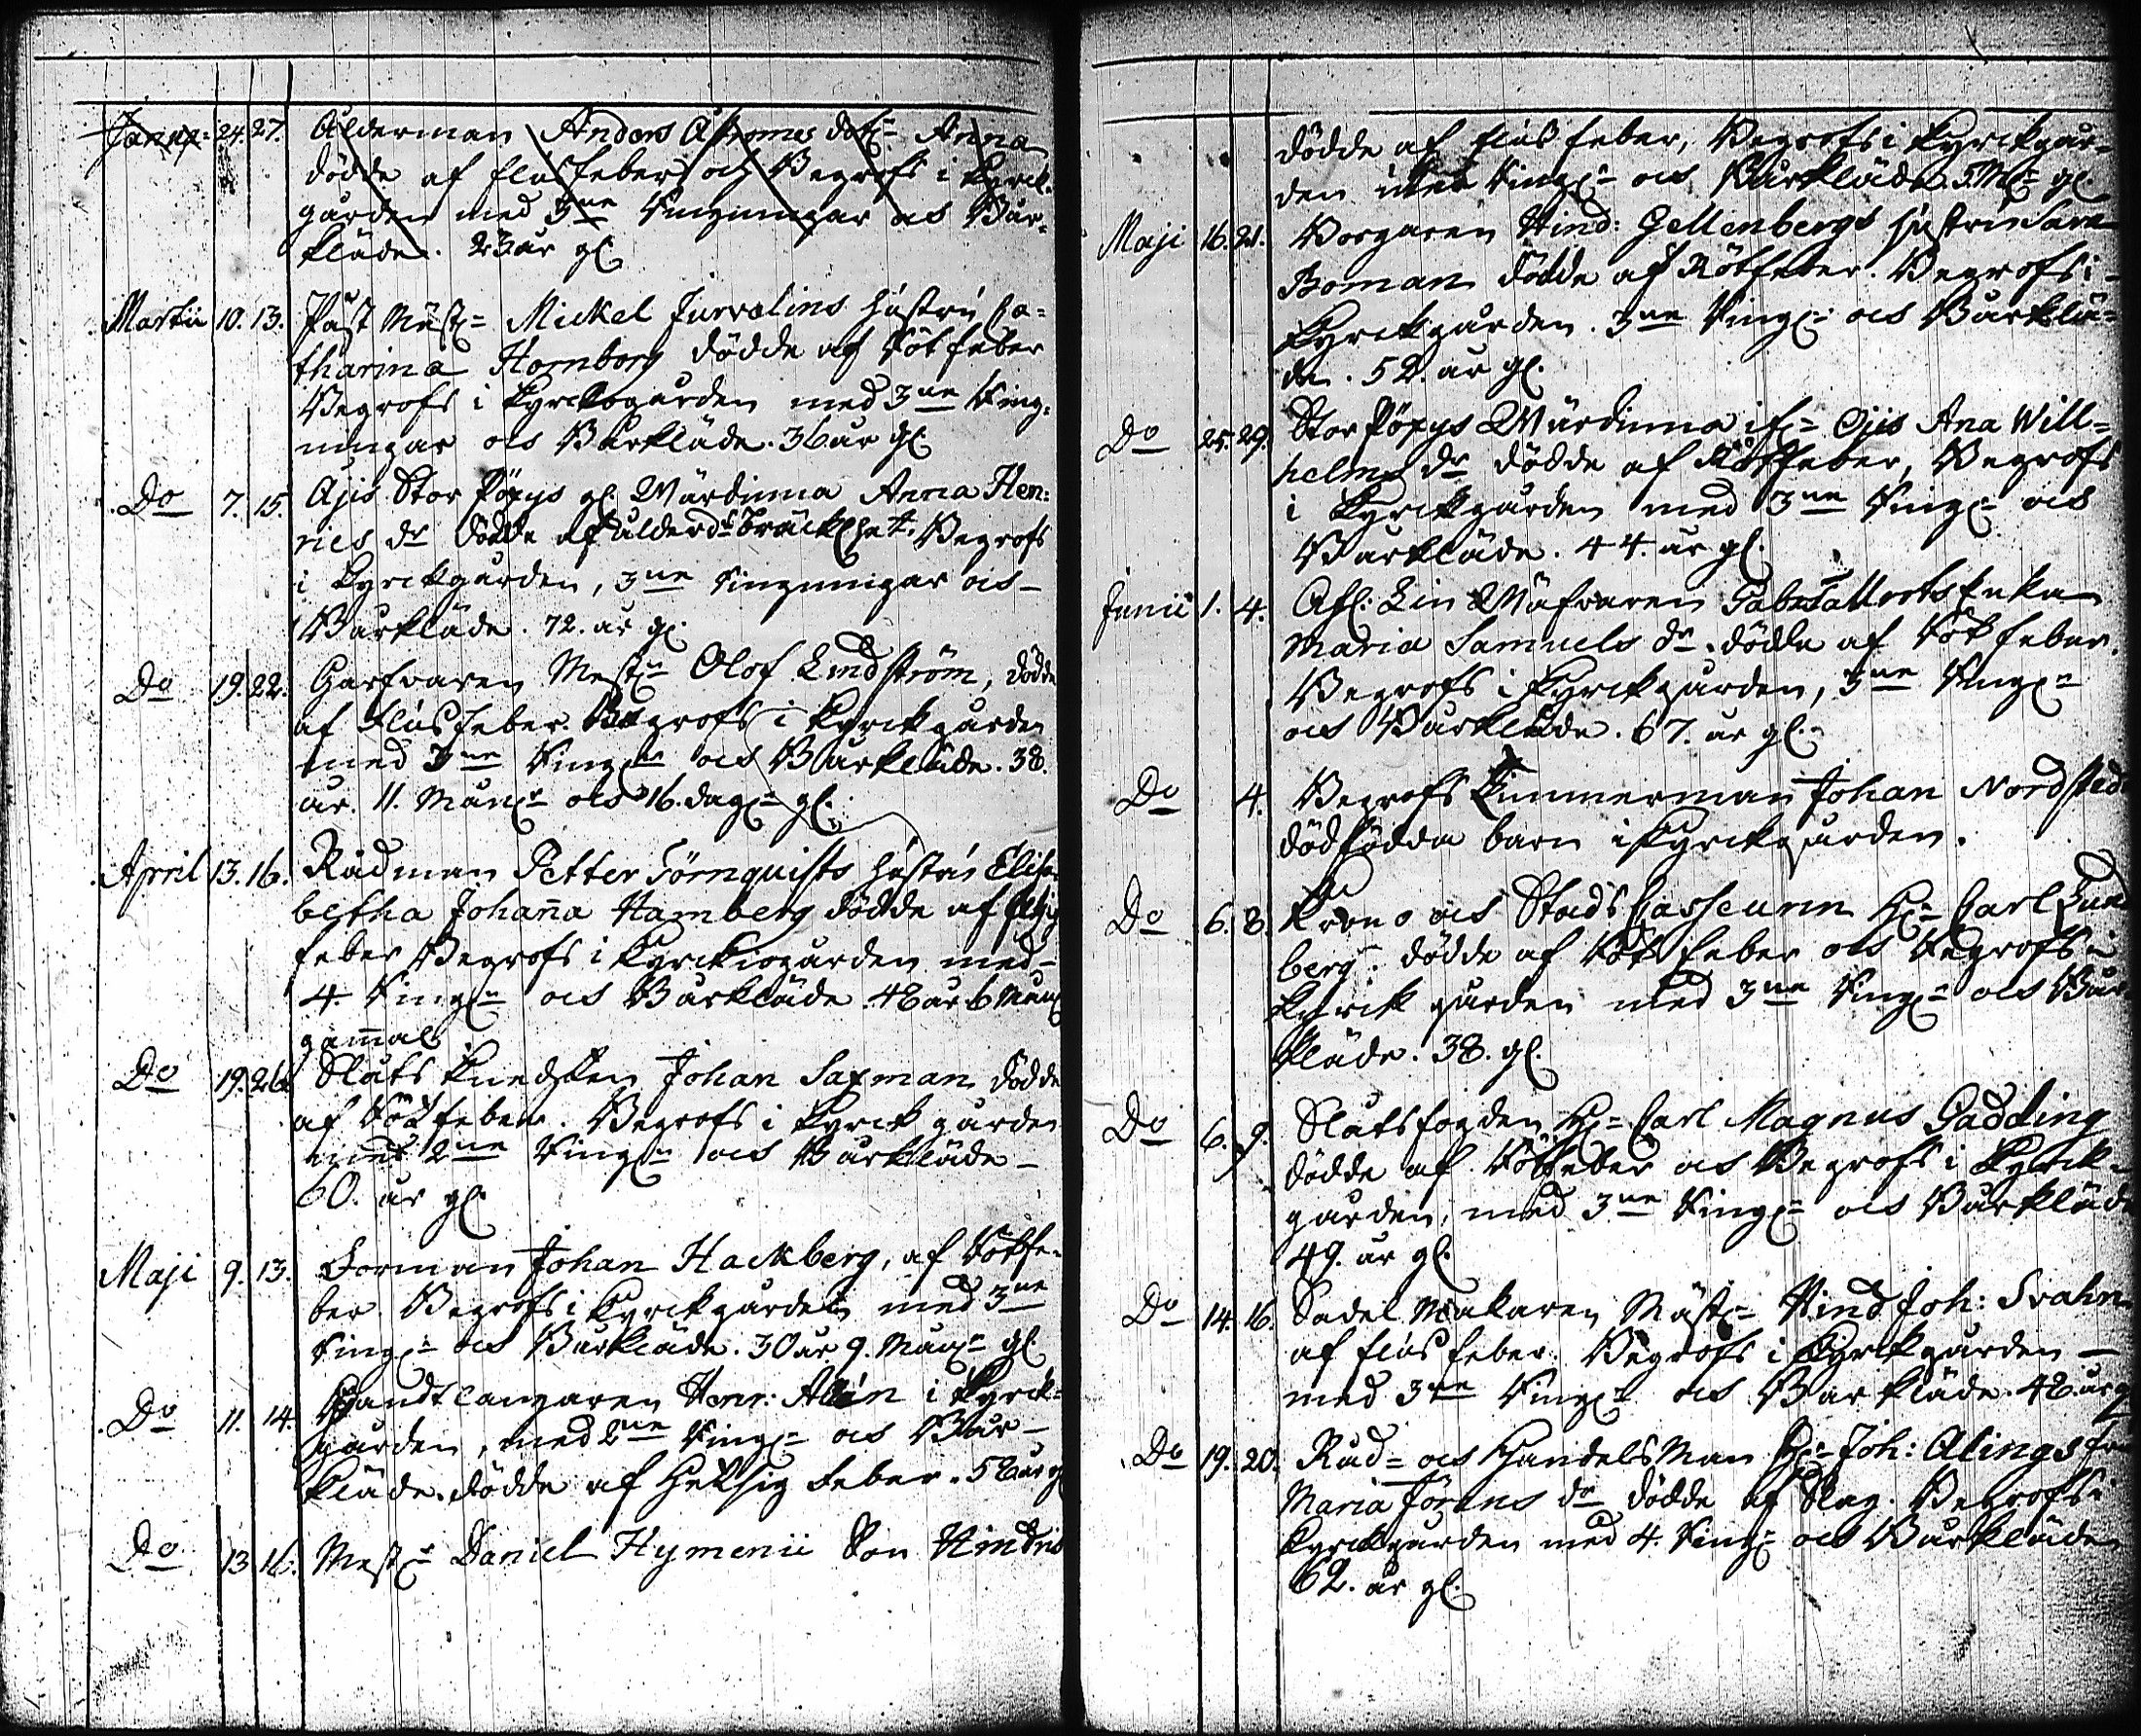 Janua: 24. 27. Ålderman Anders Åströmes dott: Anna
dödde af flusfeber och Begrofs i Kyrck-
gården med 3ne Ringningar och Bår-
kläde. 23 år gl.
Martii 10. 13. Mäst: Mickel Jurvelins Hustru Ca-
tharina Hornborg dödde af Rötfeber
Begrofs i Kyrckogården med 3ne Ring-
ningar och Bårkläde. 36 år gl.
Do 7. 15. Ajis Stor Pöpys gl. Wärdinna Anna Hen-
rics dr dödde af ålderds bräckl:het. Begrofs
i Kyrckgården, 3ne Ringningar och
Bårkläde. 72. år gl.
Do 19. 22. Garfvaren Mest: Olof Lindström, dödde
af Flusfeber. Begrofs i Kyrckgården
med 3ne Ring:r och Bårkläde. 38.
år. 11. Mån:r och 16. dag:r gl.
April 13. 16. Rådman Petter Törnquists Hustru Elisa-
betha Johanna Hamberg dödde af Hetzig
feber Begrofs i Kyrckiogården med
4. Ring:r och Bårkläde. 48 år 6 Mån:
gammal
Do 19. 26. Slåts Knechten Johan Saxman dödde
af Rötfeber. Begrofs i Kyrckgården
med 2ne Ring:r och Bårkläde
60. år gl.
Maji 9. 13. Forman Johan Hackberg, af Rötfe-
ber. Begrofs i Kyrckgården med 3ne
Ring:r och Bårkläde. 30 år 9. Mån:r gl.
Do 11. 14. Handtlangaren Henr: Alin i Kyrck-
gården, med 2ne Ring:r och Bår-
kläde. dödde af Hetsig Feber. 58 år gl
Do 13 16. Mest:r Daniel Hymenii Son Hindric
dödde af flus feber, Begrofs i Kyrckgår-
den utan Ring:r och Bårkläde. 3. M:r gl.
Maji 16. 21. Borgaren Hind: Gellenbergs Hustru Sara
Boman dödde af Rötfeber. Begrofs i
Kyrckgården. 3ne Ring:r och Bårklä-
de. 52. år gl.
Do 25. 29. Stor Pöpys Wärdinna i Ajis Ana Will-
helms dr dödde af Rötfeber, Begrofs
i Kyrckgården med 3ne Ring:r och
Bårkläde. 44. år gl.
Junii 1. 4. Afl: Lin Wäfvaren Enka
Maria Samuels dr. dödde af Rötfeber.
Begrofs i Kyrckgården, 3ne Ring:r
och Bårkläde. 67. år gl.
Do 4. Begrofs Timmerman Johan Nordsted
dödfödda barn i Kyrckgården.
Do 6. 8. Krono och Stads Casseuren H:r Carl Lund
berg. dödde af Röt feber och Begrofs i
Kyrck gården med 3ne Ring:r och Bår-
kläde. 38. gl.
Do 6. 9. Slåtsfogden H:r Carl Magnus Gadding
dödde af Rötfeber och Begrofs i Kyrck-
gården, med 3ne Ring:r och Bårkläde
49. år gl.
Do 14. 16. Sadel Makaren Mäst:r Hind Joh: Svahn
af flus feber. Begrofs i Kyrckgården
med 3ne Ring:r och Bår kläde. 48. år gl
Do 19. 20. Råd- och Handels Man H:r Joh: Alings fru
Maria Jörens dr dödde af Slag. Begrofs i
Kyrckgården med 4. Ring:r och Bårkläde
62. år gl.